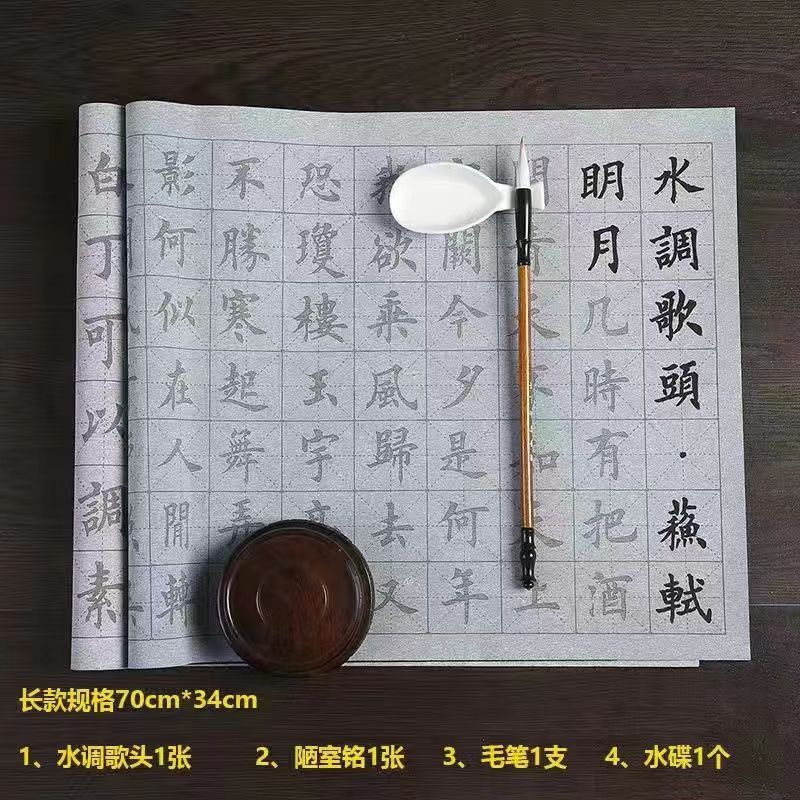 水調歌頭·蘓軾
眀月几時有把酒
問青天不知天上
闕今夕是何年
我欲乘風歸去又
恐瓊樓玉宇高
不勝寒起舞弄
影何似在人閒轉
白丁可以調素
长款规格70cm*34cm
1、水调歌头1张 2、陋室铭1张 3、毛笔1支 4、水碟1个